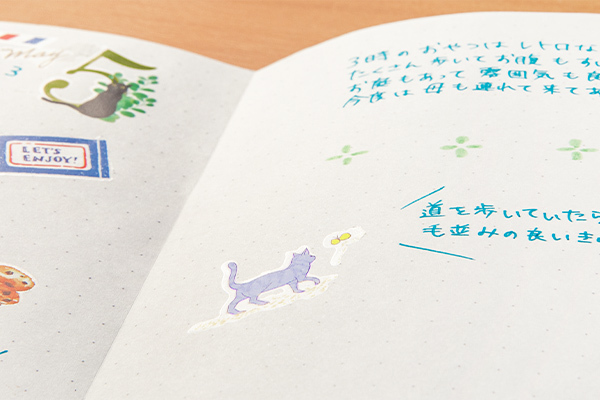 May
5
3
LET'S
ENJOY!
3時のおやつはレトロな
たくさん歩いてお腹もすい
お庭もあって雰囲気も良
今度は母も連れて来てあ
道を歩いていたら
毛並みの良いきの